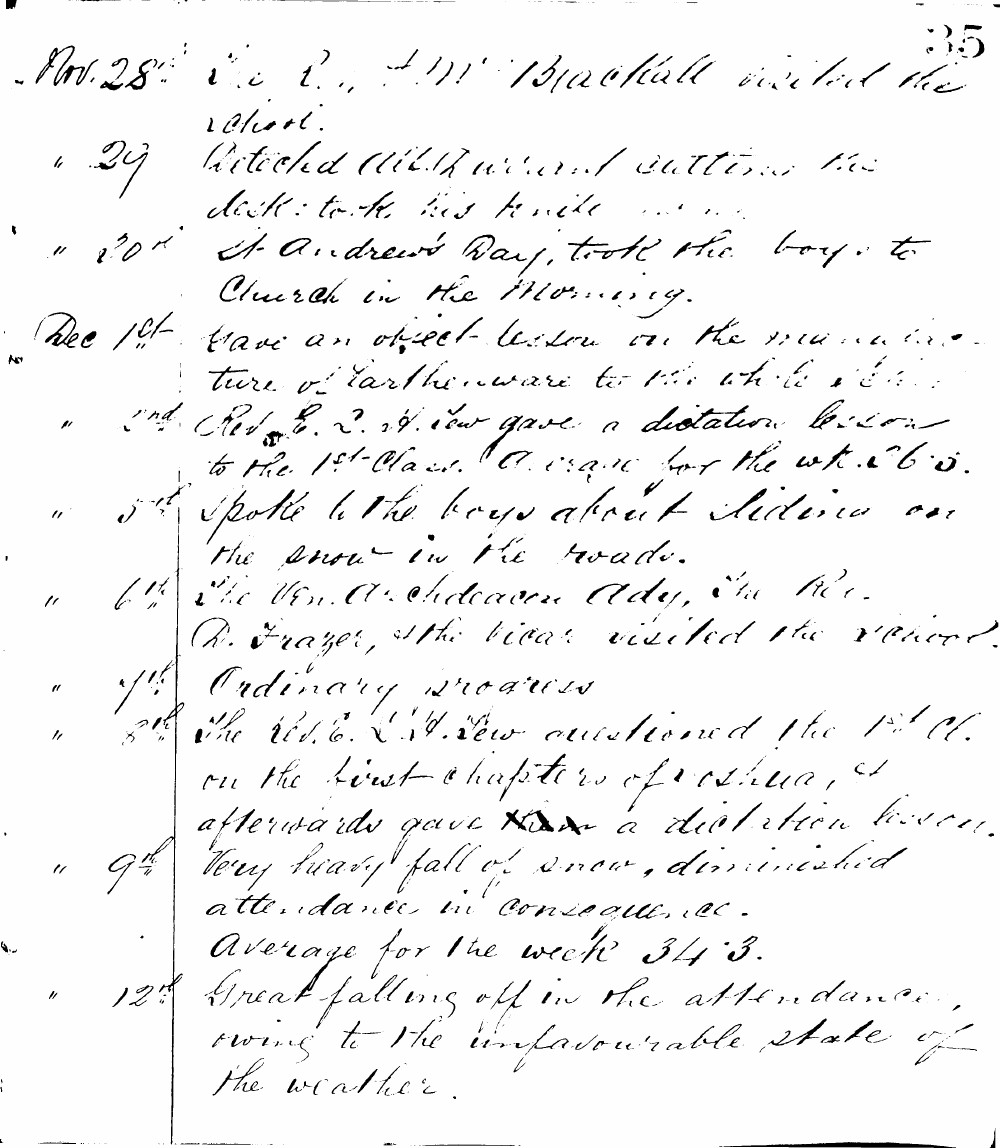 35
Nov. 28th The Rev. & Mrs Blackall visited the
school.
" 29 Detected cutting the
desk: took his knife
" 30th St Andrew's Day, took the boys to
Church in the Morning.
Dec 1st Gave an object lesson on the manufac-
ture of Earthenware to the whole school
" 2nd Rev. E. L. H. Tew gave a dictation lesson
to the 1st Class. Average for the wk. 36.5.
" 5th Spoke to the boys about sliding on
the snow in the roads.
" 6th The Ven. Archdeacon Ady, The Rev.
D. Frazer, & the Vicar visited the school.
" 7th Ordinary progress
" 8th The Rev. E. L. H. Tew questioned the 1st Cl.
on the first chapters of Joshua, &
afterwards gave a dictation lesson.
" 9th Very heavy fall of snow, diminished
attendance in consequence.
Average for the week 34.3.
" 12th Great falling off in the attendance,
owing to the unfavourable state of
the weather.